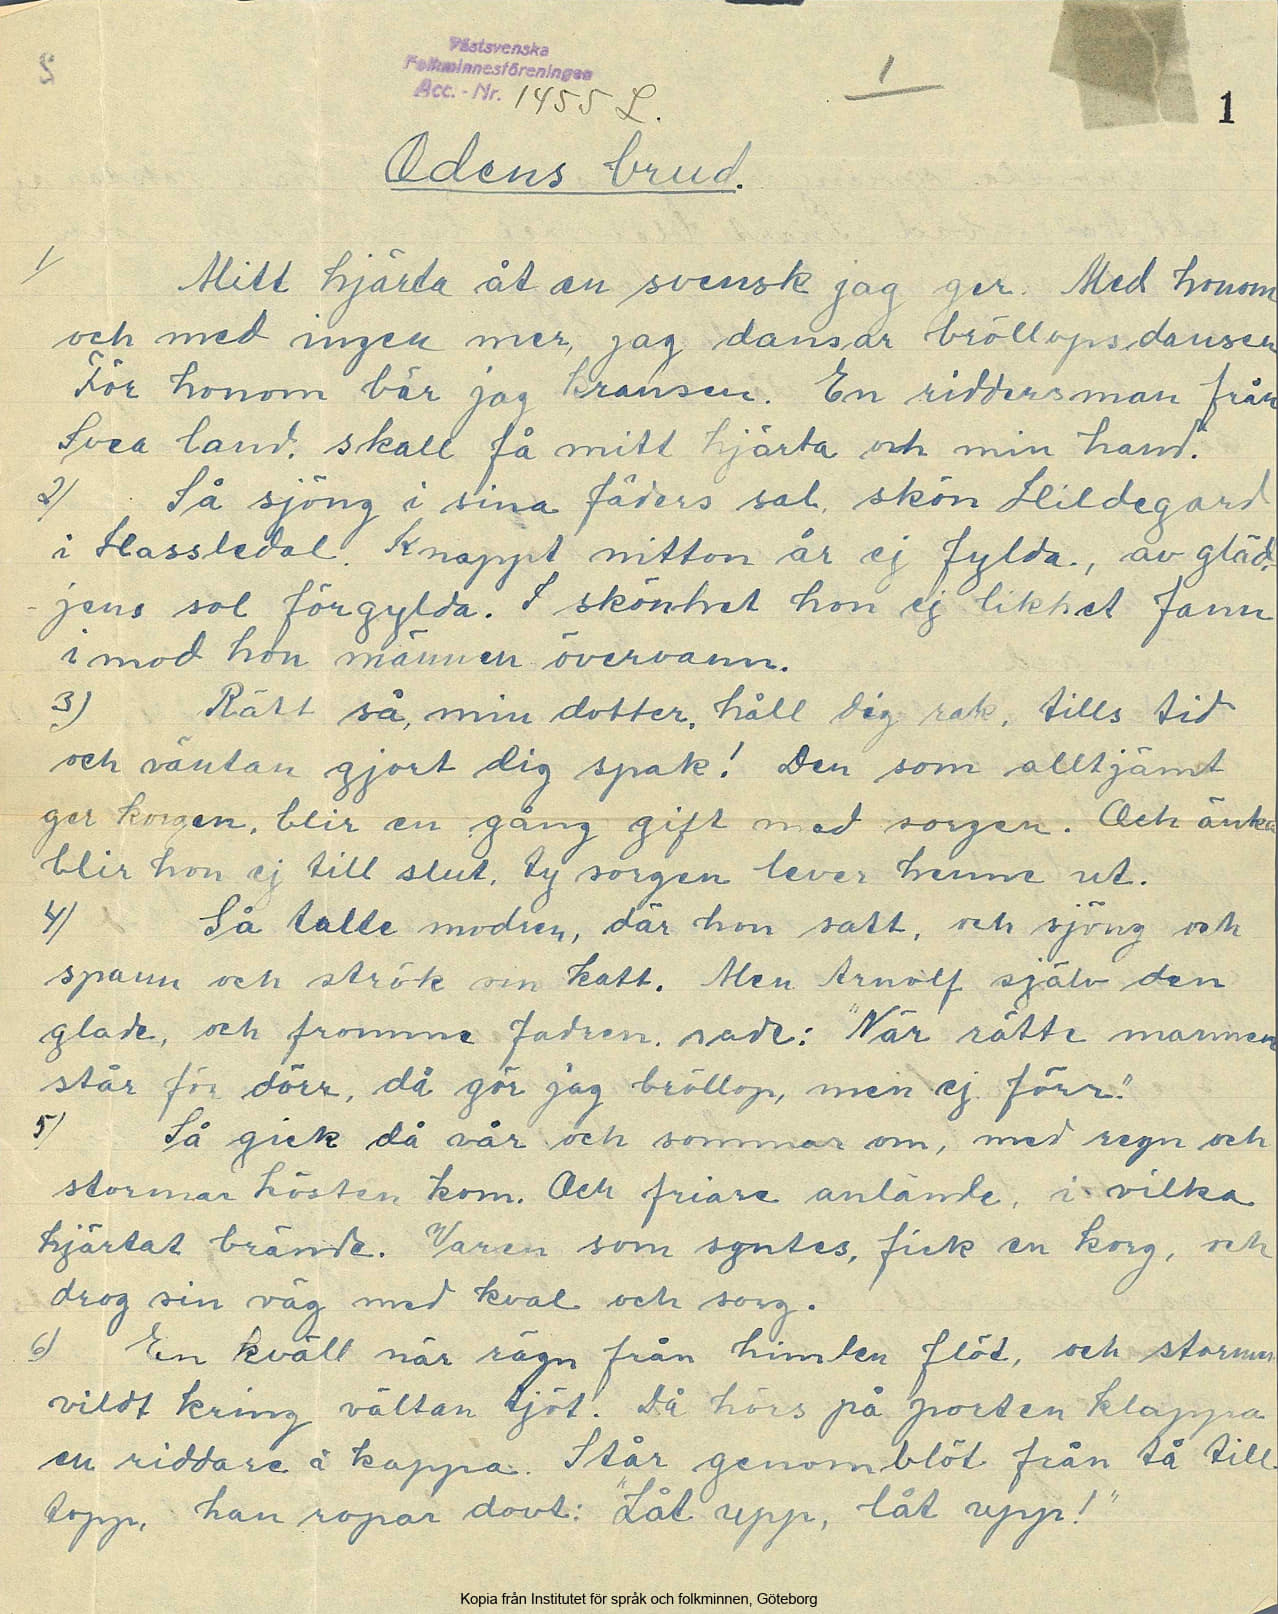 Västsvenska
Folkminnesföreningen
Acc.-Nr. 1455 L.
1
1
Odens brud.
1/ Mitt hjärta åt en svensk jag ger. Med honom
och med ingen mer, jag dansar bröllopsdansen
För honom bär jag kransen. En riddersman från
Svea land, skall få mitt hjärta och min hand.
2/ Så sjöng i sina fäders sal, skön Hildegard
i Hassledal. Knappt nitton år ej fylda, av gläd-
jens sol förgylda. I skönhet hon ej likhet fann
i mod hon männen övervann.
3) Rätt så, min dotter, håll dig rak, tills tid
och väntan gjort dig spak! Den som alltjämt
ger korgen, blir en gång gift med sorgen. Och änka
blir hon ej till slut, ty sorgen lever henne ut.
4/ Så talte modren, där hon satt, och sjöng och
spann och strök sin katt. Men Arnolf själv den
glade, och fromme fadren, sade: "När rätte mannen
står för dörr, då gör jag bröllop, men ej förr."
5/ Så gick då vår och sommar om, med regn och
stormar hösten kom. Och friare anlände, i vilka
hjärtat brände. Varen som syntes, fick en korg, och
drog sin väg med kval och sorg.
6) En kväll när rägn från himlen flöt, och stormen
vildt kring vältan tjöt. Då hörs på porten klappa
en riddare i kappa. Står genomblöt från tå till
topp, han ropar dovt: "Låt upp, låt upp!"
Kopia från Institutet för språk och folkminnen, Göteborg